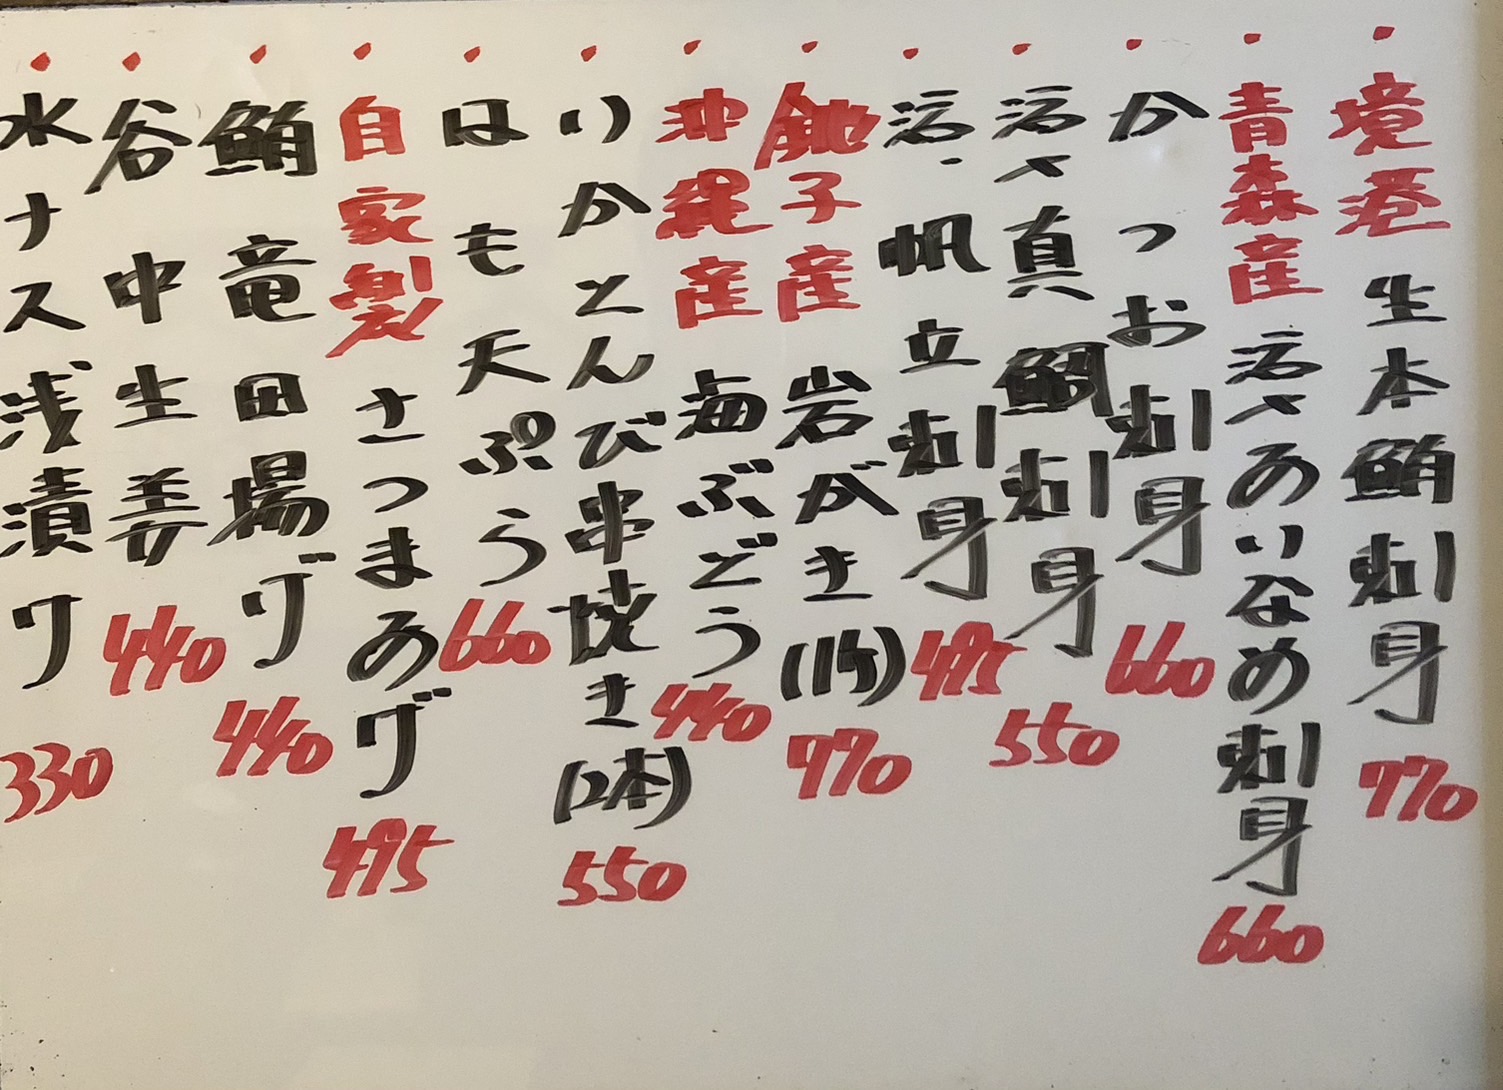 境港 生本鮪刺身 770
青森産 活〆あいなめ刺身 660
かつお刺身 660
活〆真鯛刺身 550
活・帆立刺身 495
銚子産 岩がき(1ケ) 770
沖縄産 海ぶどう 440
いかとんび串焼き(2本) 550
はも天ぷら 660
自家製 さつまあげ 495
鮪竜田揚げ 440
谷中生姜 440
水ナス浅漬け 330